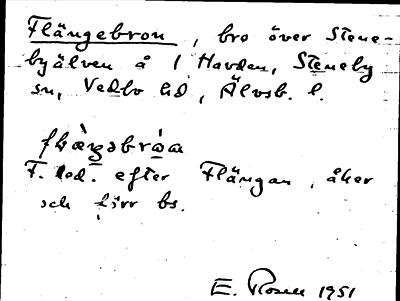 Flängebron, bro över Stene-
byälven å 1 Havden, Steneby
sn, Vedbo hd, Älvsb. l.
F. led. efter Flängan, åker
och förr bs.
E. Rosell 1951